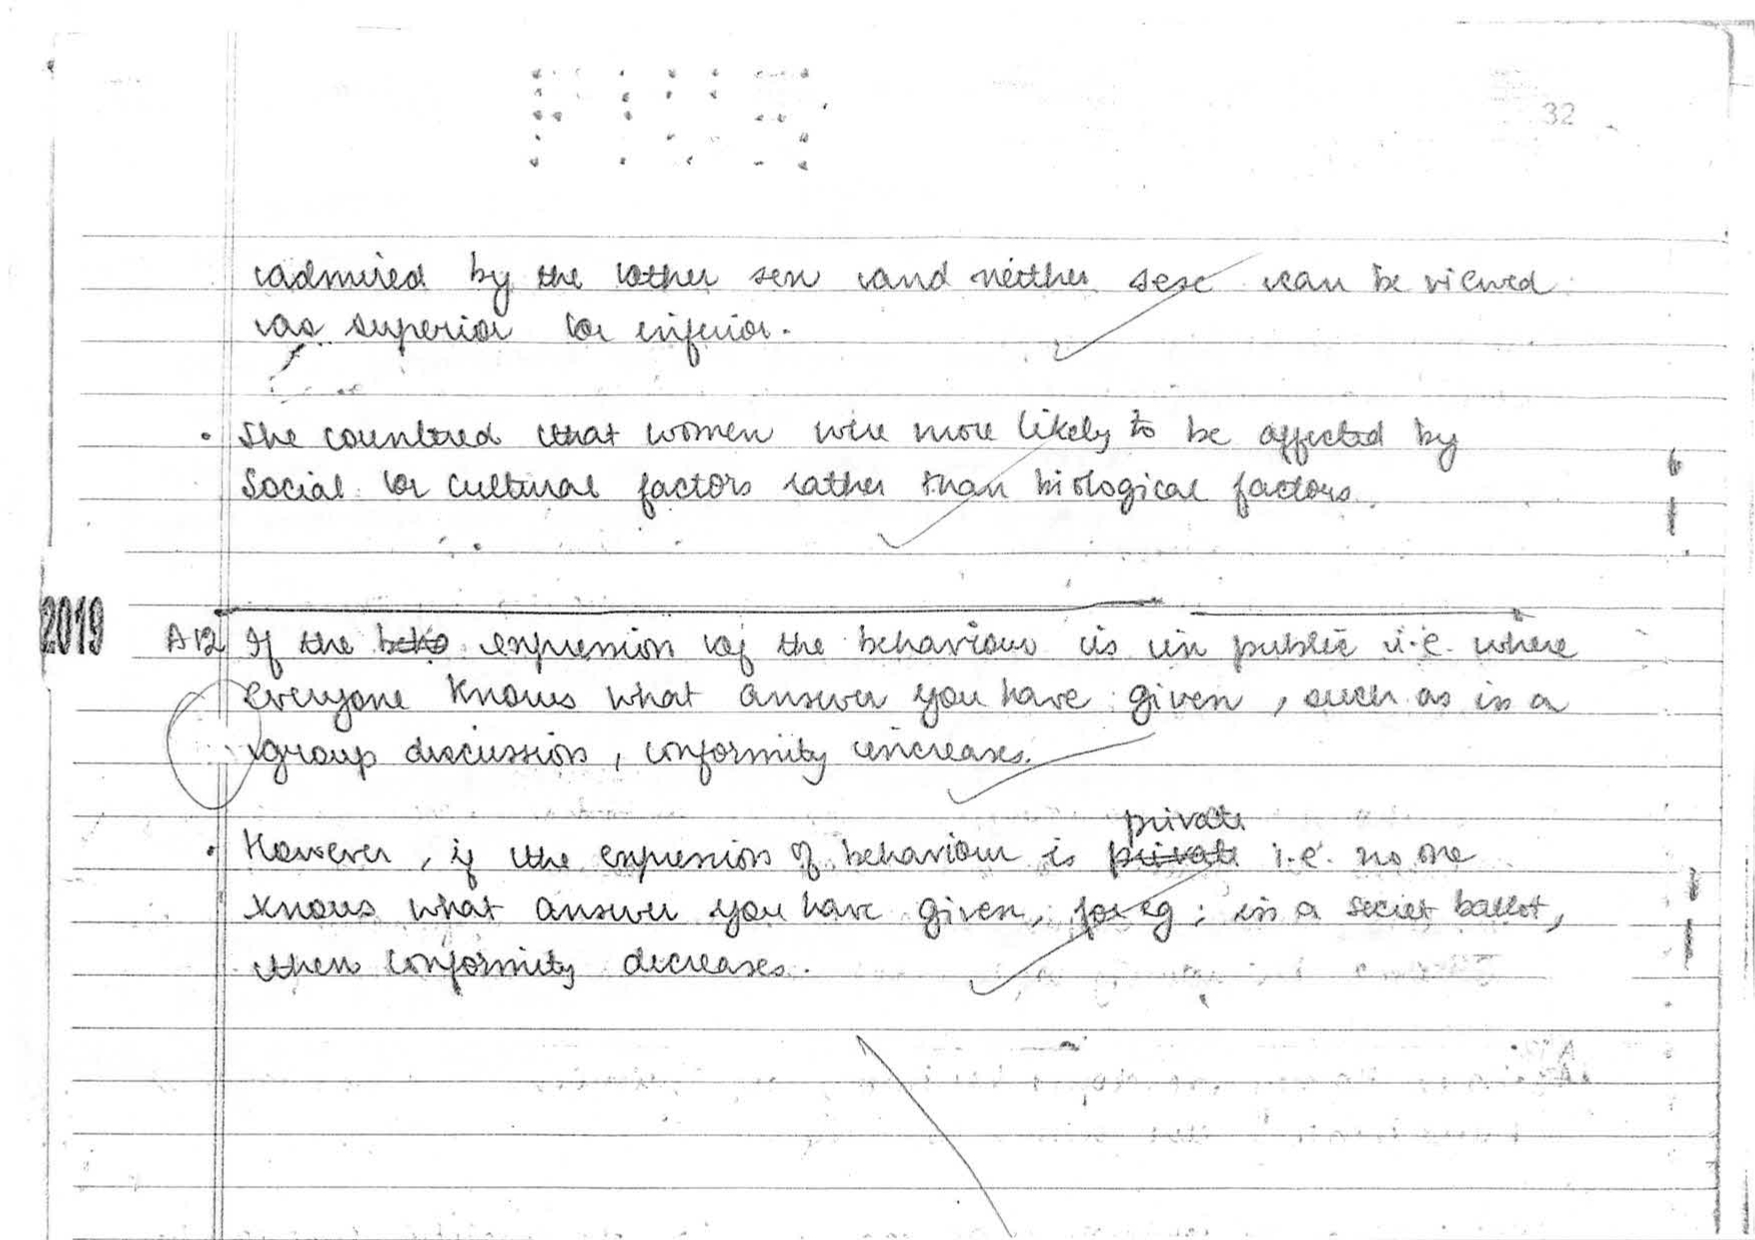 32
admired by the other sex and neither sex can be viewed
as superior or inferior.
• She countred that women were more likely to be affected by
Social or cultural factors rather than biological factors.
2019
A12 If the expression of the behaviour is in public i.e. where
everyone knows what answer you have given, such as in a
group discussion, conformity increases.
private
• However, if the expression of behaviour is private i.e. no one
knows what answer you have given, for eg; in a secret ballot,
then conformity decreases.